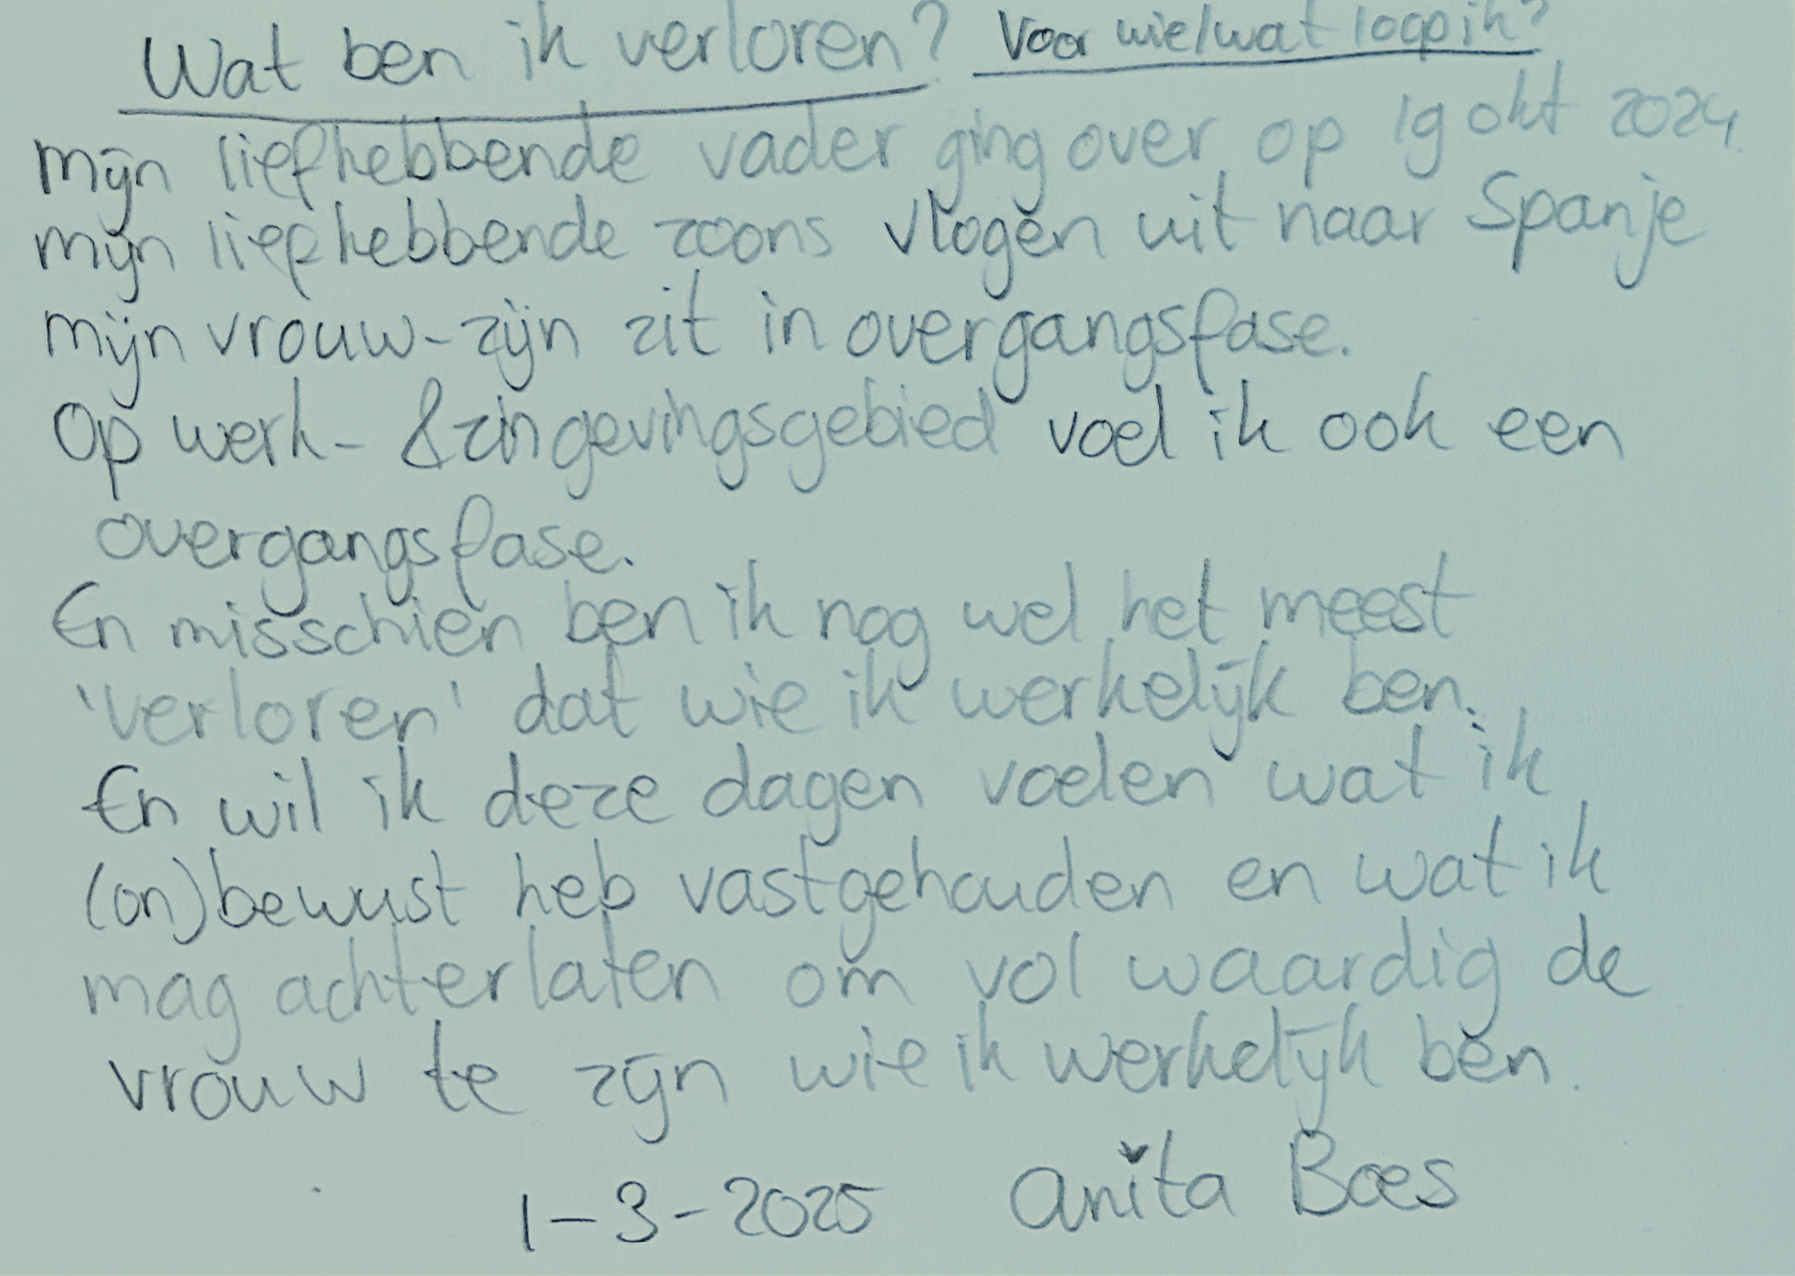 Wat ben ik verloren? Voor wie/wat loop ik?
mijn liefhebbende vader ging over op 19 okt 2024.
mijn liefhebbende zoons vlogen uit naar Spanje
mijn vrouw-zijn zit in overgangsfase.
Op werk- & zingevingsgebied voel ik ook een
overgangsfase.
En misschien ben ik nog wel het meest
'verloren' dat wie ik werkelijk ben.
En wil ik deze dagen voelen wat ik
(on)bewust heb vastgehouden en wat ik
mag achterlaten om vol waardig de
vrouw te zijn wie ik werkelijk ben.
1-3-2025 Anita Boes